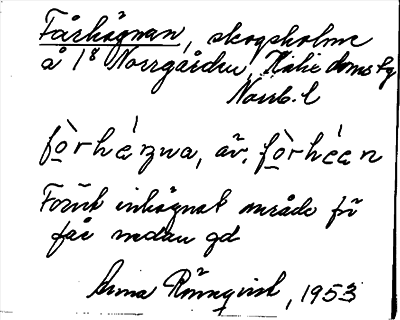 Fårhägnan, skogsholme
å 1⁸ Norrgården, Hälie doms sg
Norrb. l
fòrhę́ŋna, äv. fòrhéan
Förut inhägnat område för
får nedan gd
Anna Rönnqvist, 1953